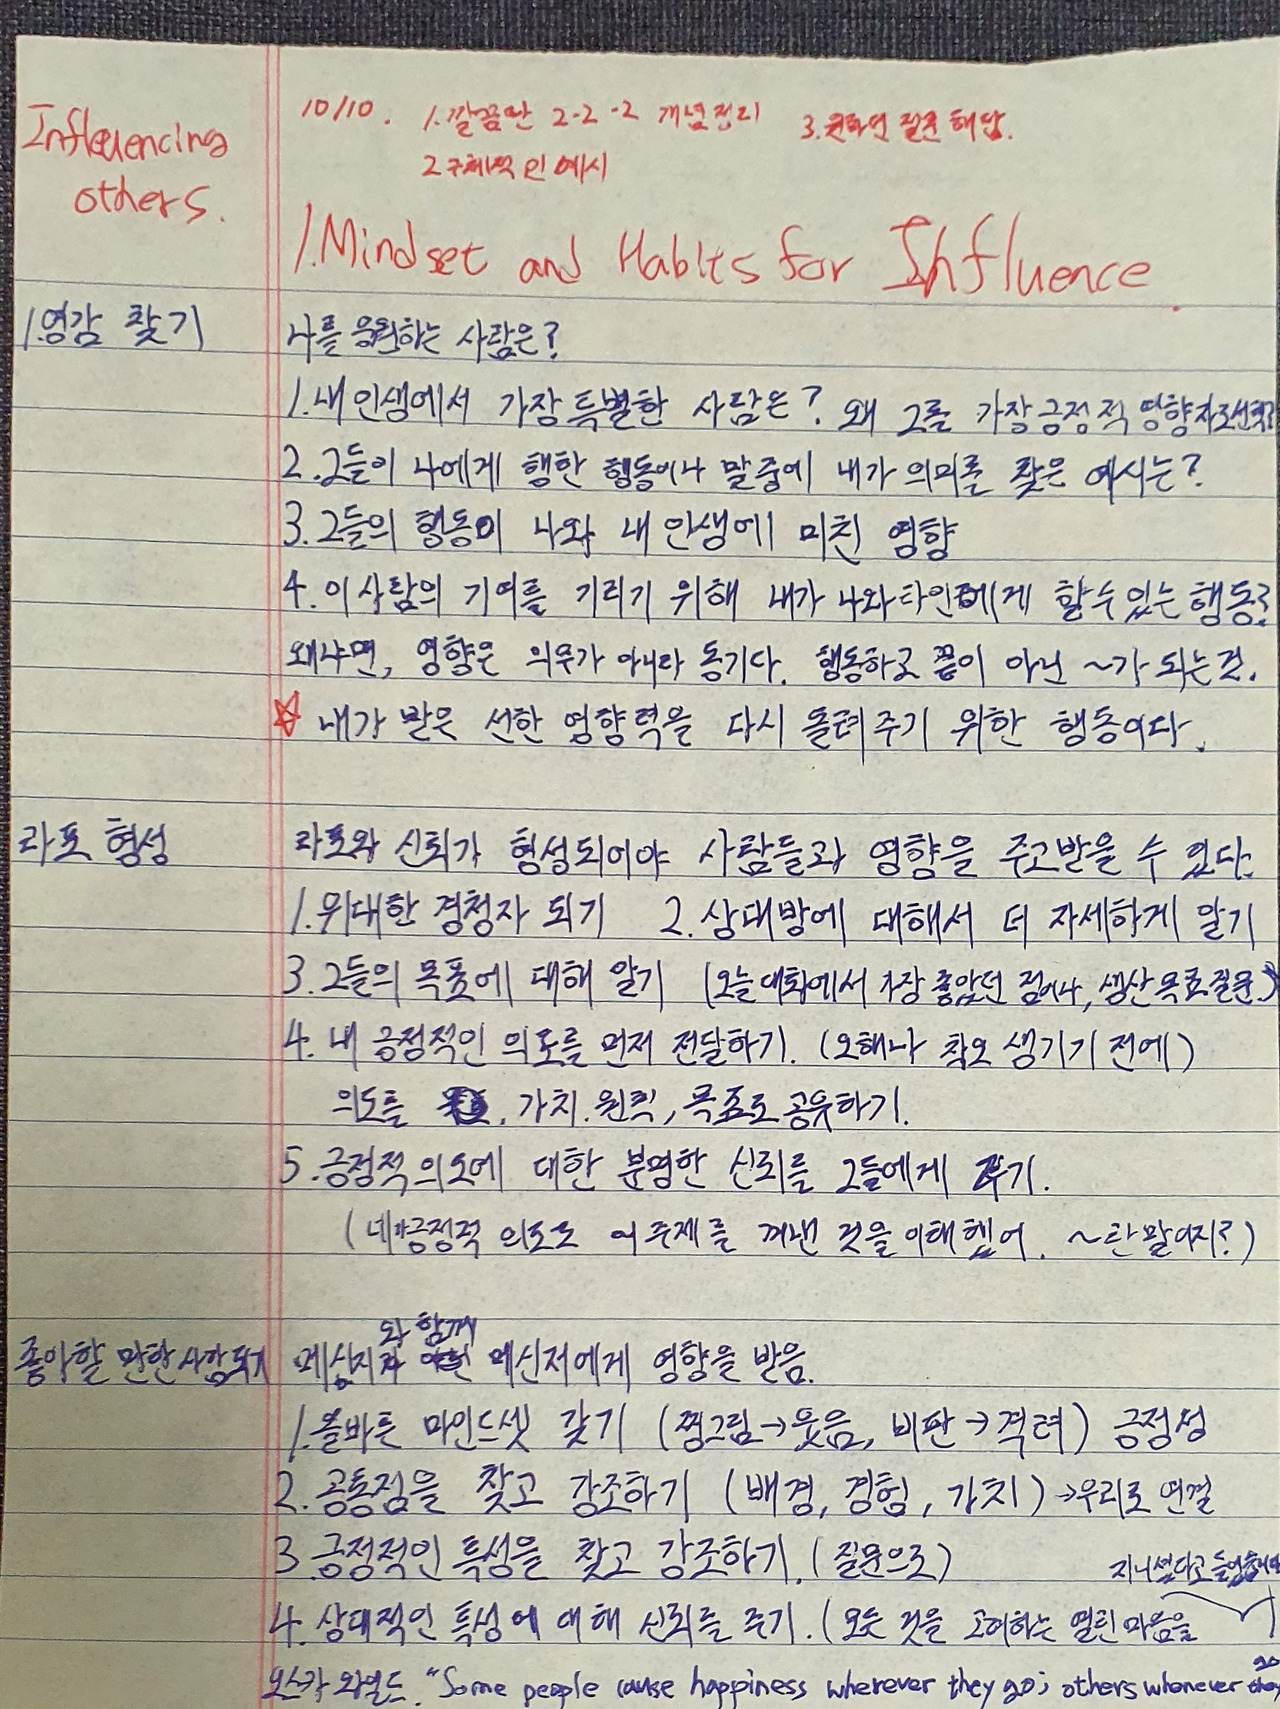 Influencing
others.
10/10. 1. 깔끔한 2-2-2 개념정리 3. 질문 해답.
2. 구체적인 예시
1. Mindset and Habits for Influence.
1. 영감 찾기
나를 응원하는 사람은?
1. 내 인생에서 가장 특별한 사람은? 왜 그를 가장 긍정적 영향자로 선택?
2. 그들이 나에게 행한 행동이나 말 중에 내가 의미를 찾은 예시는?
3. 그들의 행동이 나와 내 인생에 미친 영향
4. 이 사람의 기여를 기리기 위해 내가 나와 타인에게 할 수 있는 행동?
왜냐면, 영향은 의무가 아니라 동기다. 행동하고 끝이 아닌 ~가 되는 것.
☆ 내가 받은 선한 영향력을 다시 돌려주기 위한 행동이다.
라포 형성
라포와 신뢰가 형성되어야 사람들과 영향을 주고받을 수 있다.
1. 위대한 경청자 되기 2. 상대방에 대해서 더 자세하게 알기
3. 그들의 목표에 대해 알기 (오늘 대화에서 가장 좋았던 점이나, 생산 목표 질문)
4. 내 긍정적인 의도를 먼저 전달하기. (오해나 착오 생기기 전에)
의도를 가치. 원칙, 목표로 공유하기.
5. 긍정적 의도에 대한 분명한 신뢰를 그들에게 주기.
(네가 긍정적 의도로 이 주제를 꺼낸 것을 이해했어. ~란 말이지?)
좋아할 만한 사람 되기
와 함께
메시지와 메신저에게 영향을 받음.
1. 올바른 마인드셋 갖기 (찡그림→웃음, 비판→격려) 긍정성
2. 공통점을 찾고 강조하기 (배경, 경험, 가치) →우리로 연결
3. 긍정적인 특성을 찾고 강조하기. (질문으로)
지니셨다고 들었습니다
4. 상대적인 특성에 대해 신뢰를 주기. (모든 것을 고려하는 열린 마음을
오스카 와일드. "Some people cause happiness wherever they go; others whenever they
go